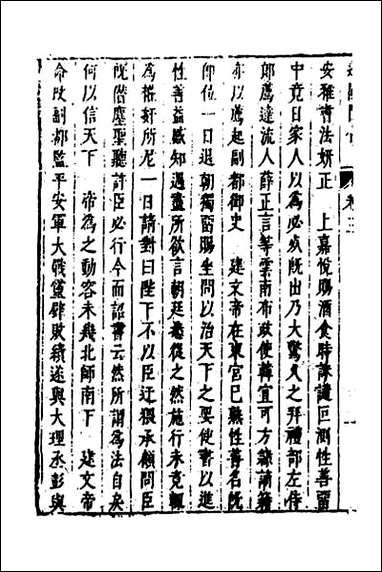 安雅書法妍正　上嘉悅賜酒食時謀議叵測性善留
中竟日家人以為必死旣出乃大驚久之拜禮部左侍
郎薦達流人薛正言等雲南布政使韓宜可方隸謫籍
亦以薦起副都御史　建文帝在東宮已熟性善名旣
卽位一日退朝獨畱賜坐問以治天下之要使書以進
性善益感知遇盡所欲言朝廷悉從之然施行未竟輒
為權奸所尼一日請對曰陛下不以臣迂猥承顧問臣
旣僭塵聖聽許臣必行今而詔書云然所謂為法自矣
何以信天下　帝為之動容未幾北師南下　建文帝
命改副都監平安軍大戰靈壁敗績遂與大理丞彭與